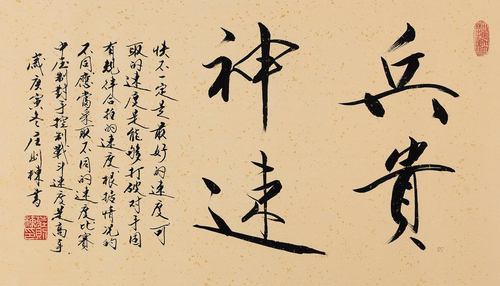 兵貴
神速
快不一定是最好的速度可
取的速度是能够打破对手固
有規律合拍的速度根据情况的
不同應當采取不同的速度比賽
中压制對手控制戰斗速度是高手
歲庚寅冬庄則棟書